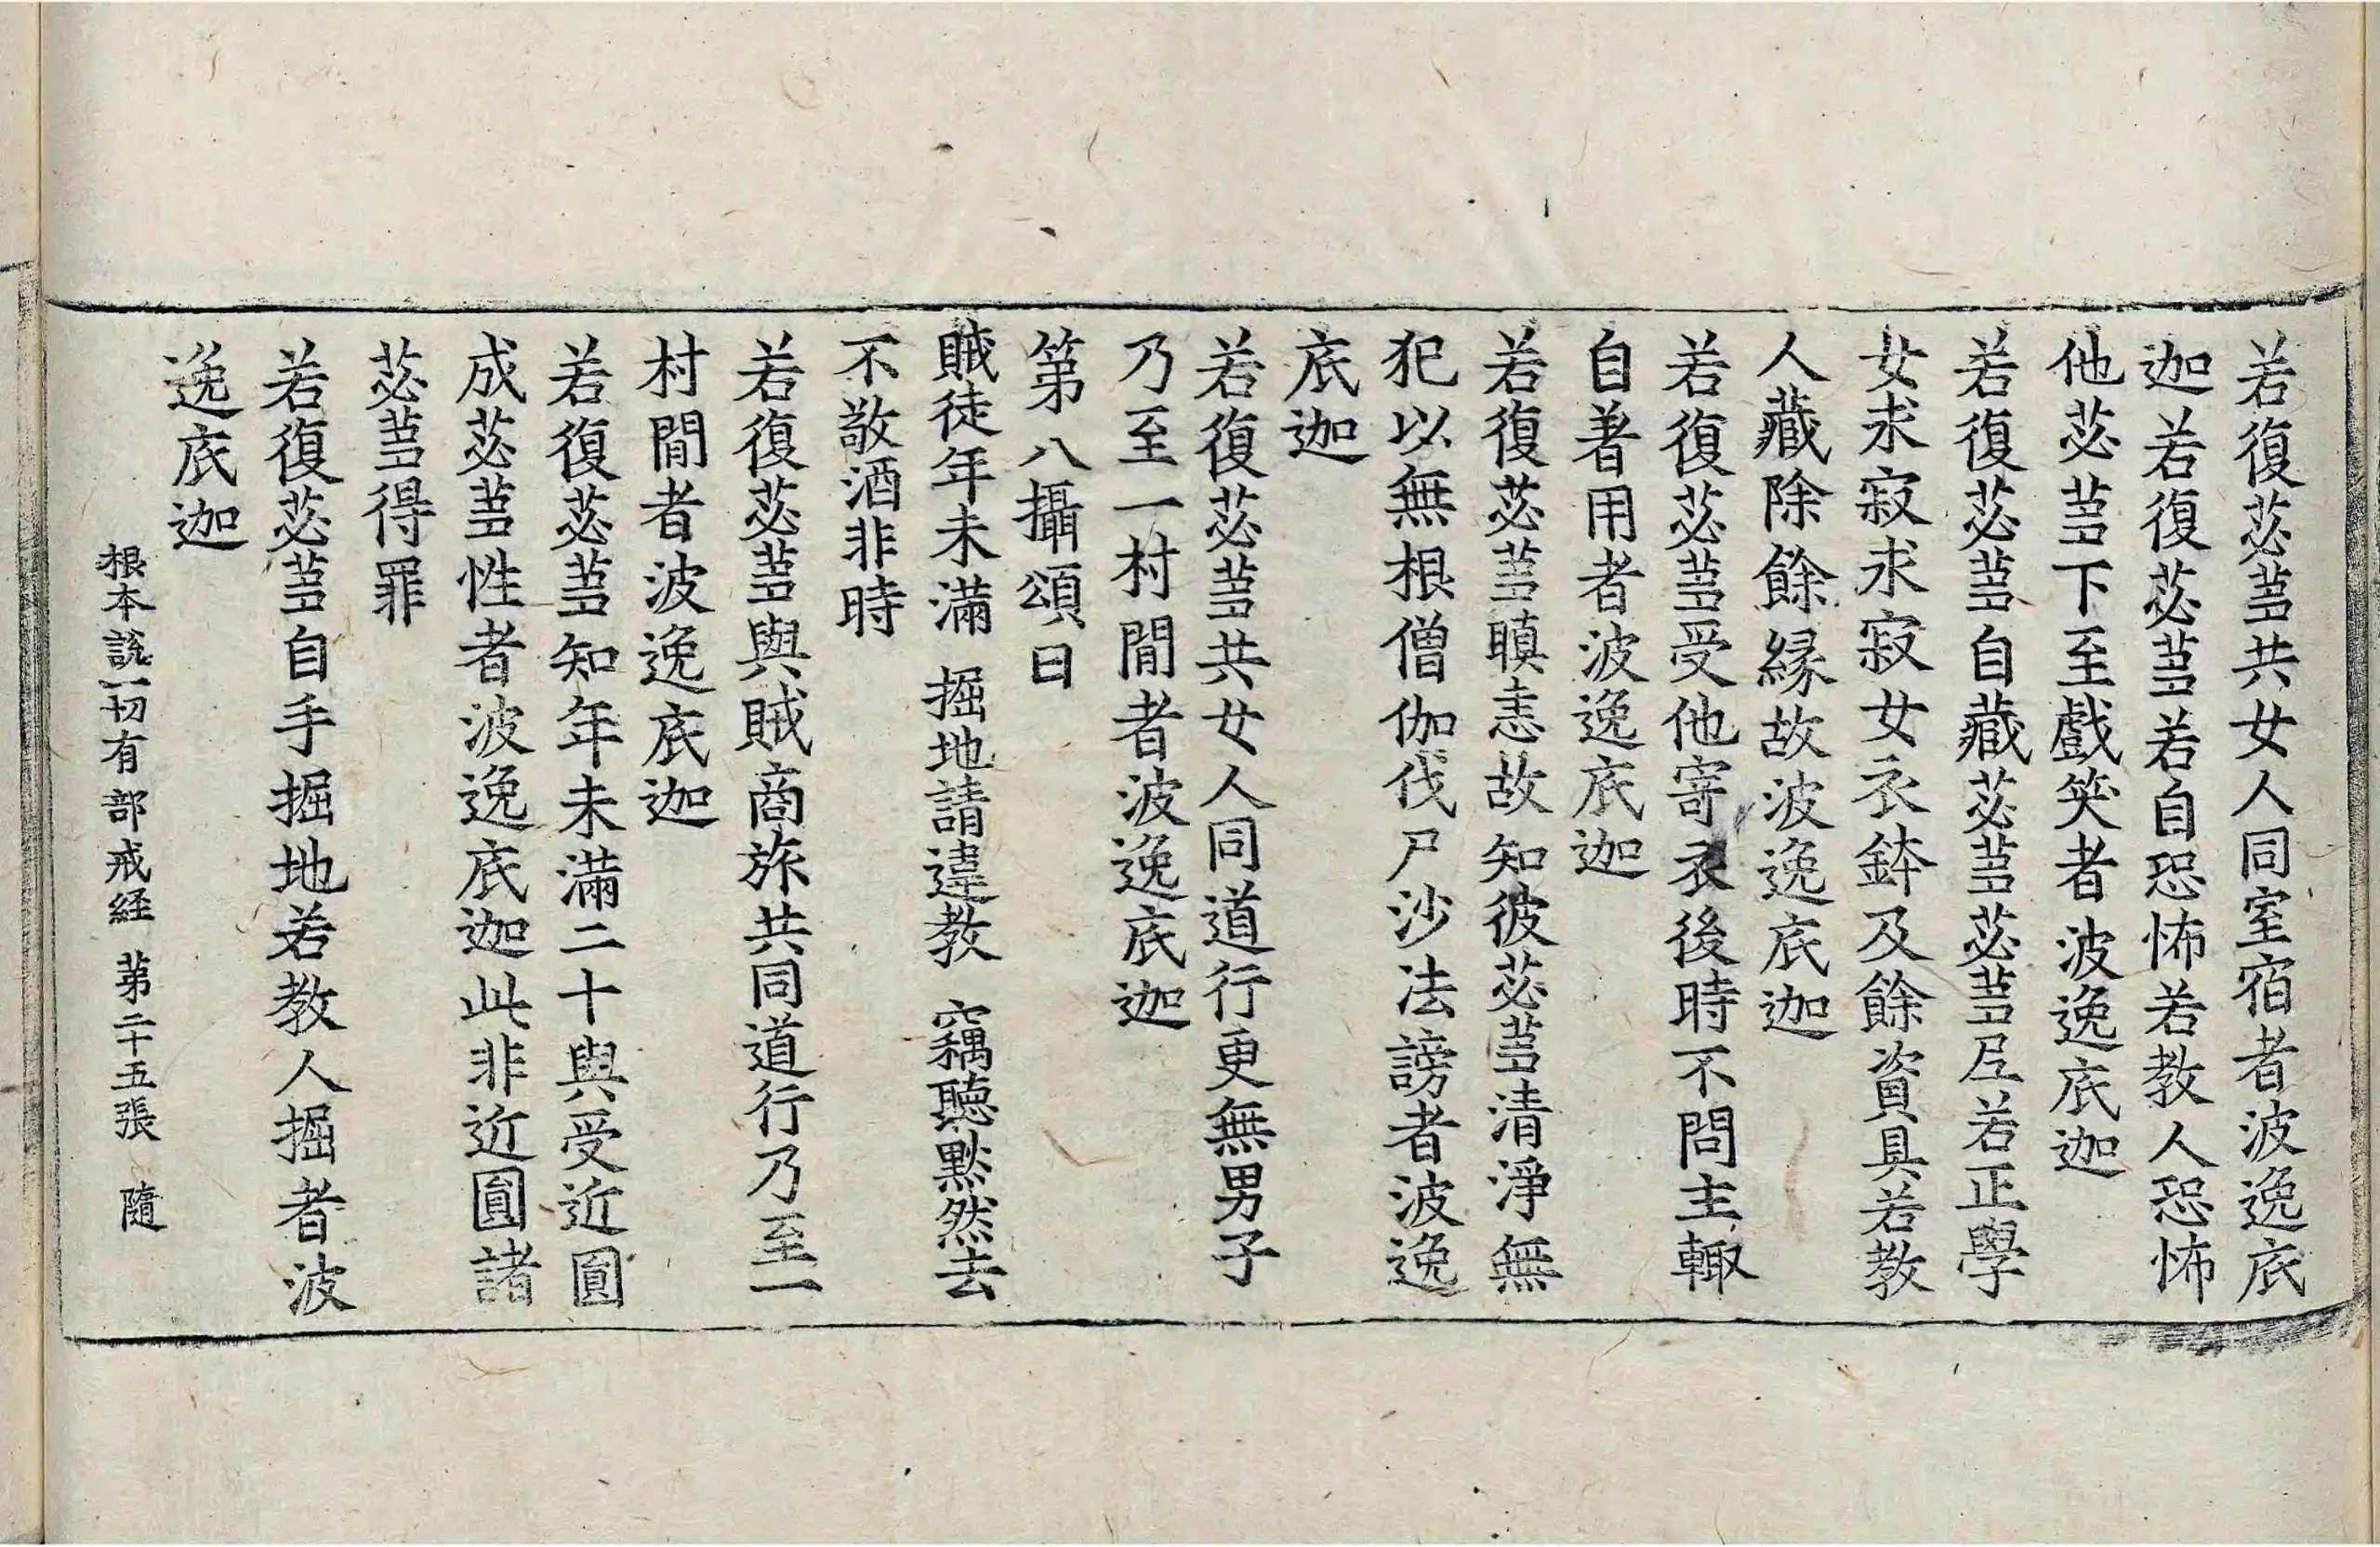 若復苾蒭共女人同室宿者波逸底
迦若復苾蒭若自恐怖若教人恐怖
他苾蒭下至戲笑者波逸底迦
若復苾蒭自藏苾蒭苾蒭尼若正學
女求寂求寂女衣鉢及餘資具若教
人藏除餘緣故波逸底迦
若復苾蒭受他寄衣後時不問主輙
自著用者波逸底迦
若復苾蒭瞋恚故知彼苾蒭清淨無
犯以無根僧伽伐尸沙法謗者波逸
底迦
若復苾蒭共女人同道行更無男子
乃至一村間者波逸底迦
第八攝頌曰
賊徒年未滿 掘地請違教 竊聽默然去
不敬酒非時
若復苾蒭與賊商旅共同道行乃至一
村間者波逸底迦
若復苾蒭知年未滿二十與受近圓
成苾蒭性者波逸底迦此非近圓諸
苾蒭得罪
若復苾蒭自手掘地若教人掘者波
逸底迦
根本說一切有部戒経 第二十五張 隨